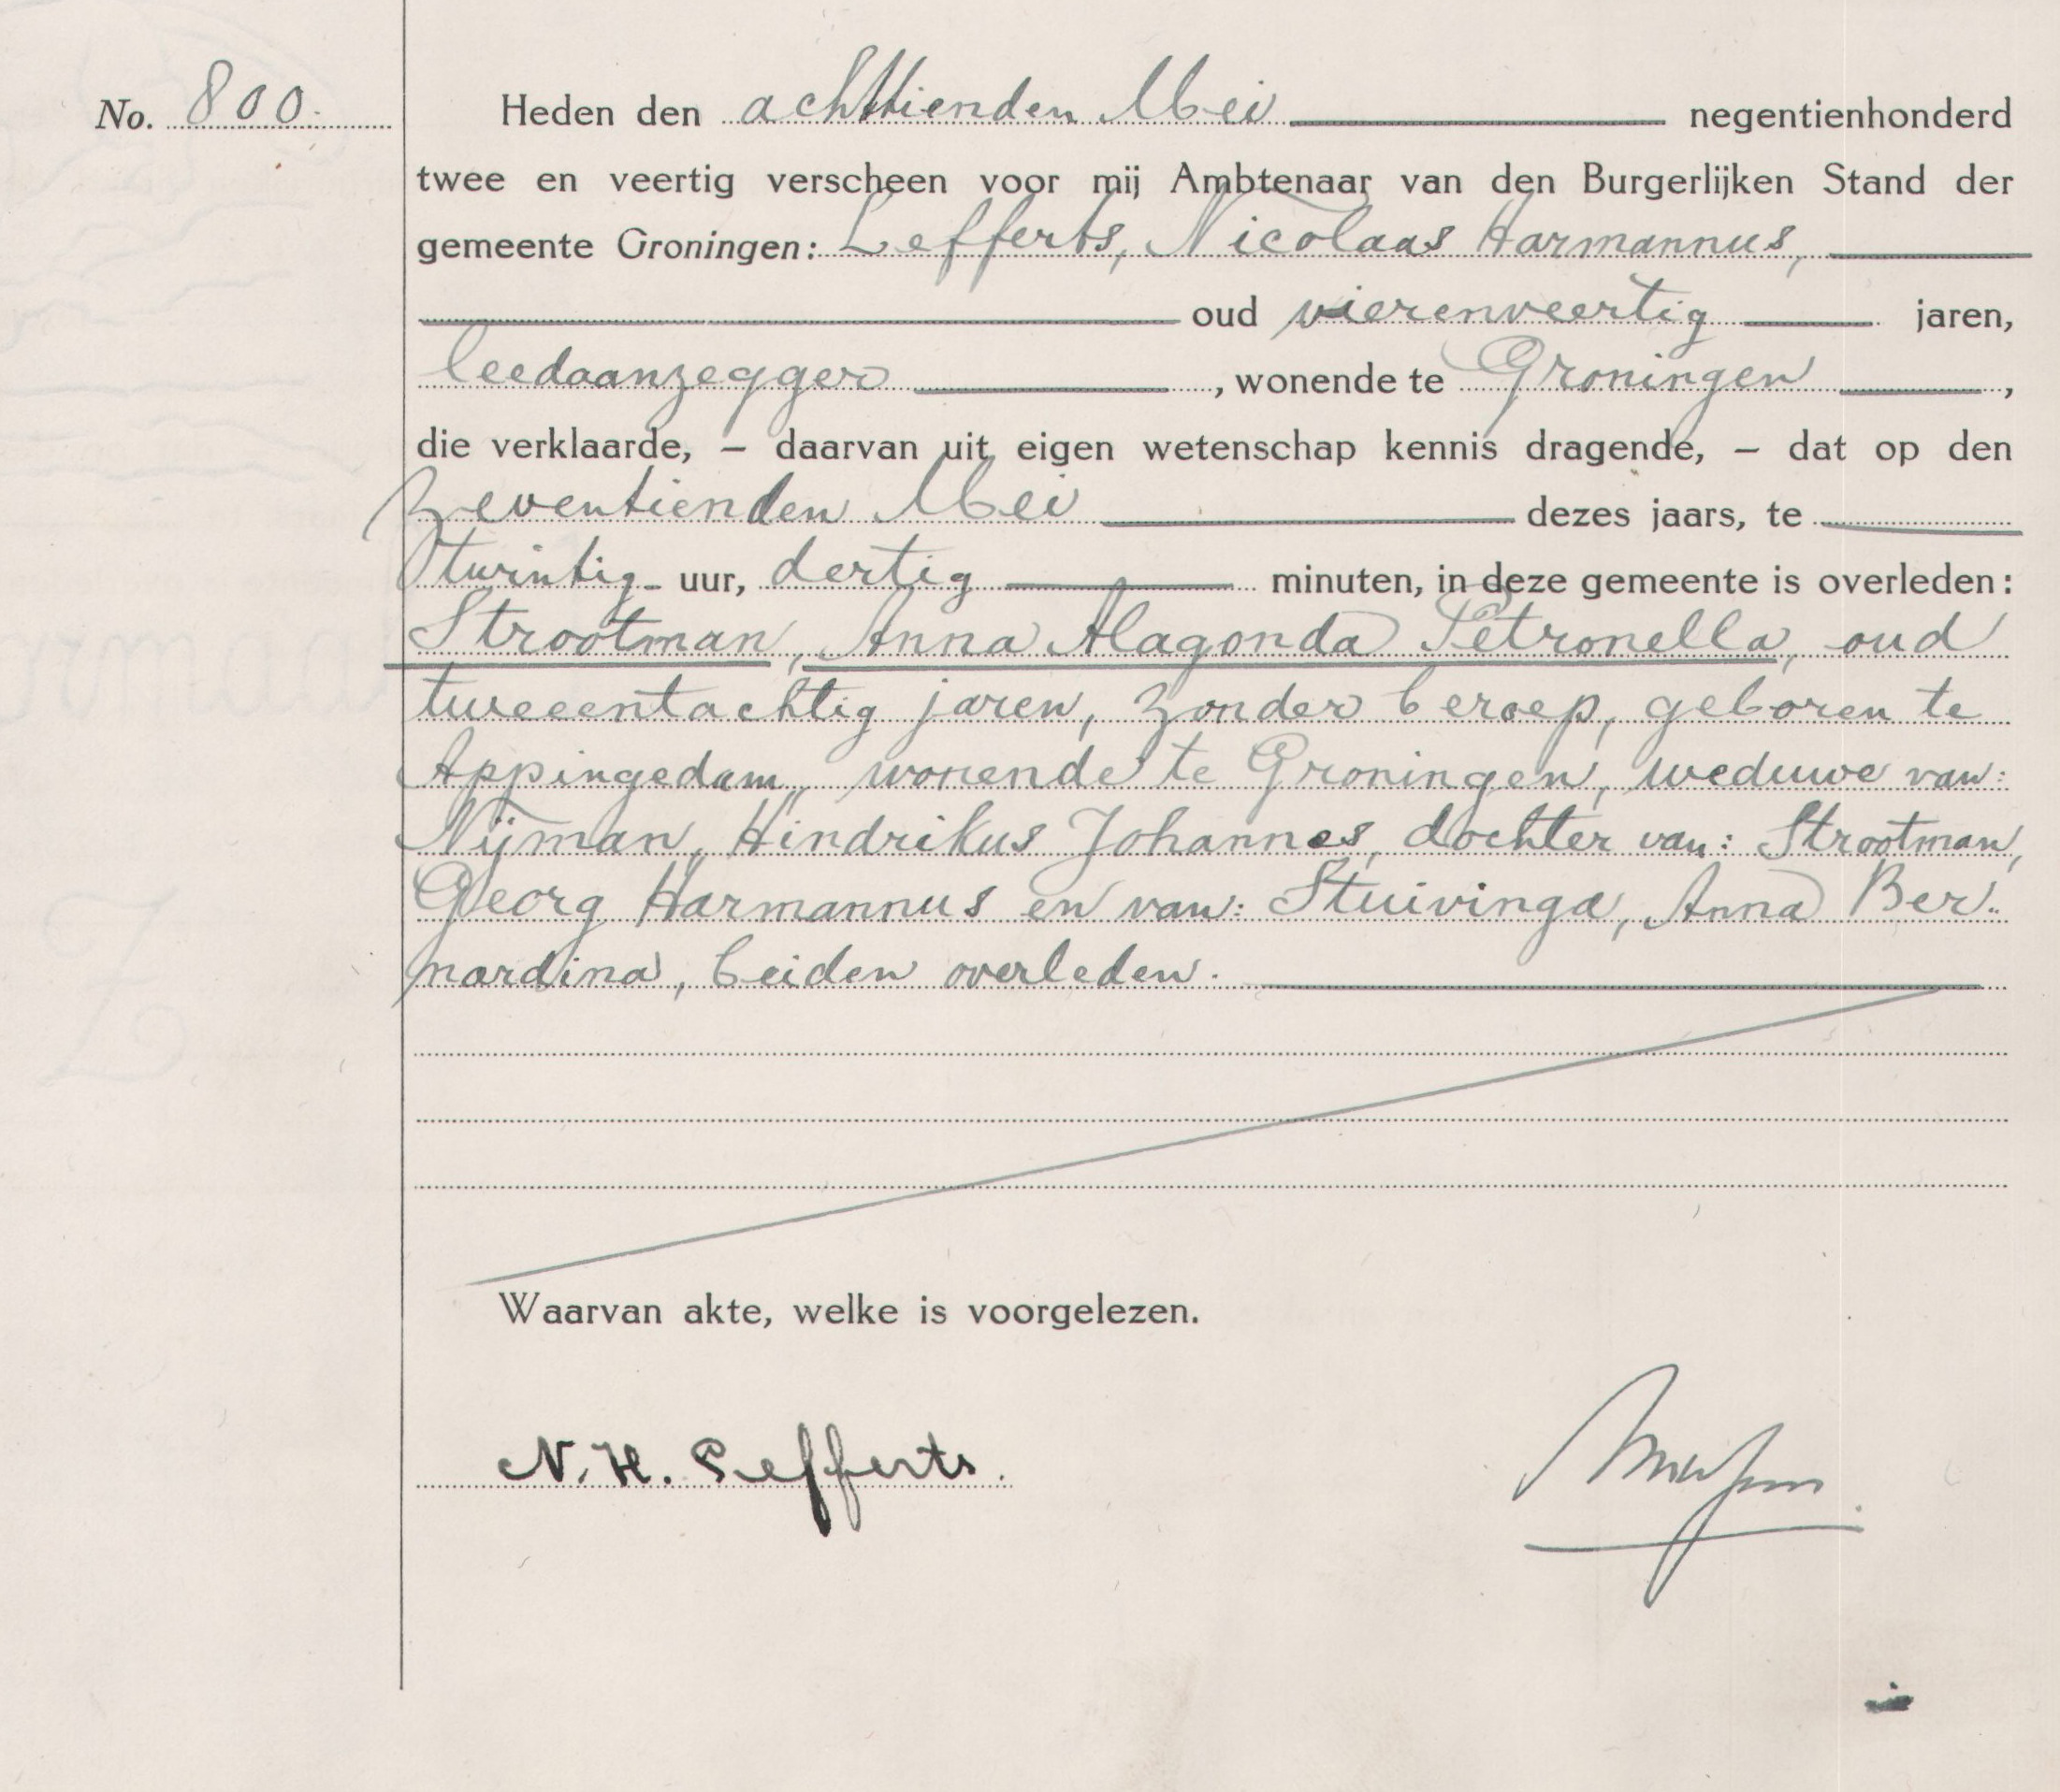 No. 800.
Heden den achttienden Mei negentienhonderd
twee en veertig verscheen voor mij Ambtenaar van den Burgerlijken Stand der
gemeente Groningen: Lefferts, Nicolaas Harmannus,
oud vierenveertig jaren,
leedaanzegger, wonende te Groningen,
die verklaarde, – daarvan uit eigen wetenschap kennis dragende, – dat op den
zeventienden Mei dezes jaars, te
twintig uur, dertig minuten, in deze gemeente is overleden:
Strootman, Anna Alagonda Petronella, oud
tweeentachtig jaren, zonder beroep, geboren te
Appingedam, wonende te Groningen, weduwe van:
Nijman, Hindrikus Johannes, dochter van: Strootman,
Georg Harmannus en van: Stuivinga, Anna Ber-
nardina, beiden overleden.
Waarvan akte, welke is voorgelezen.
N. H. Lefferts.